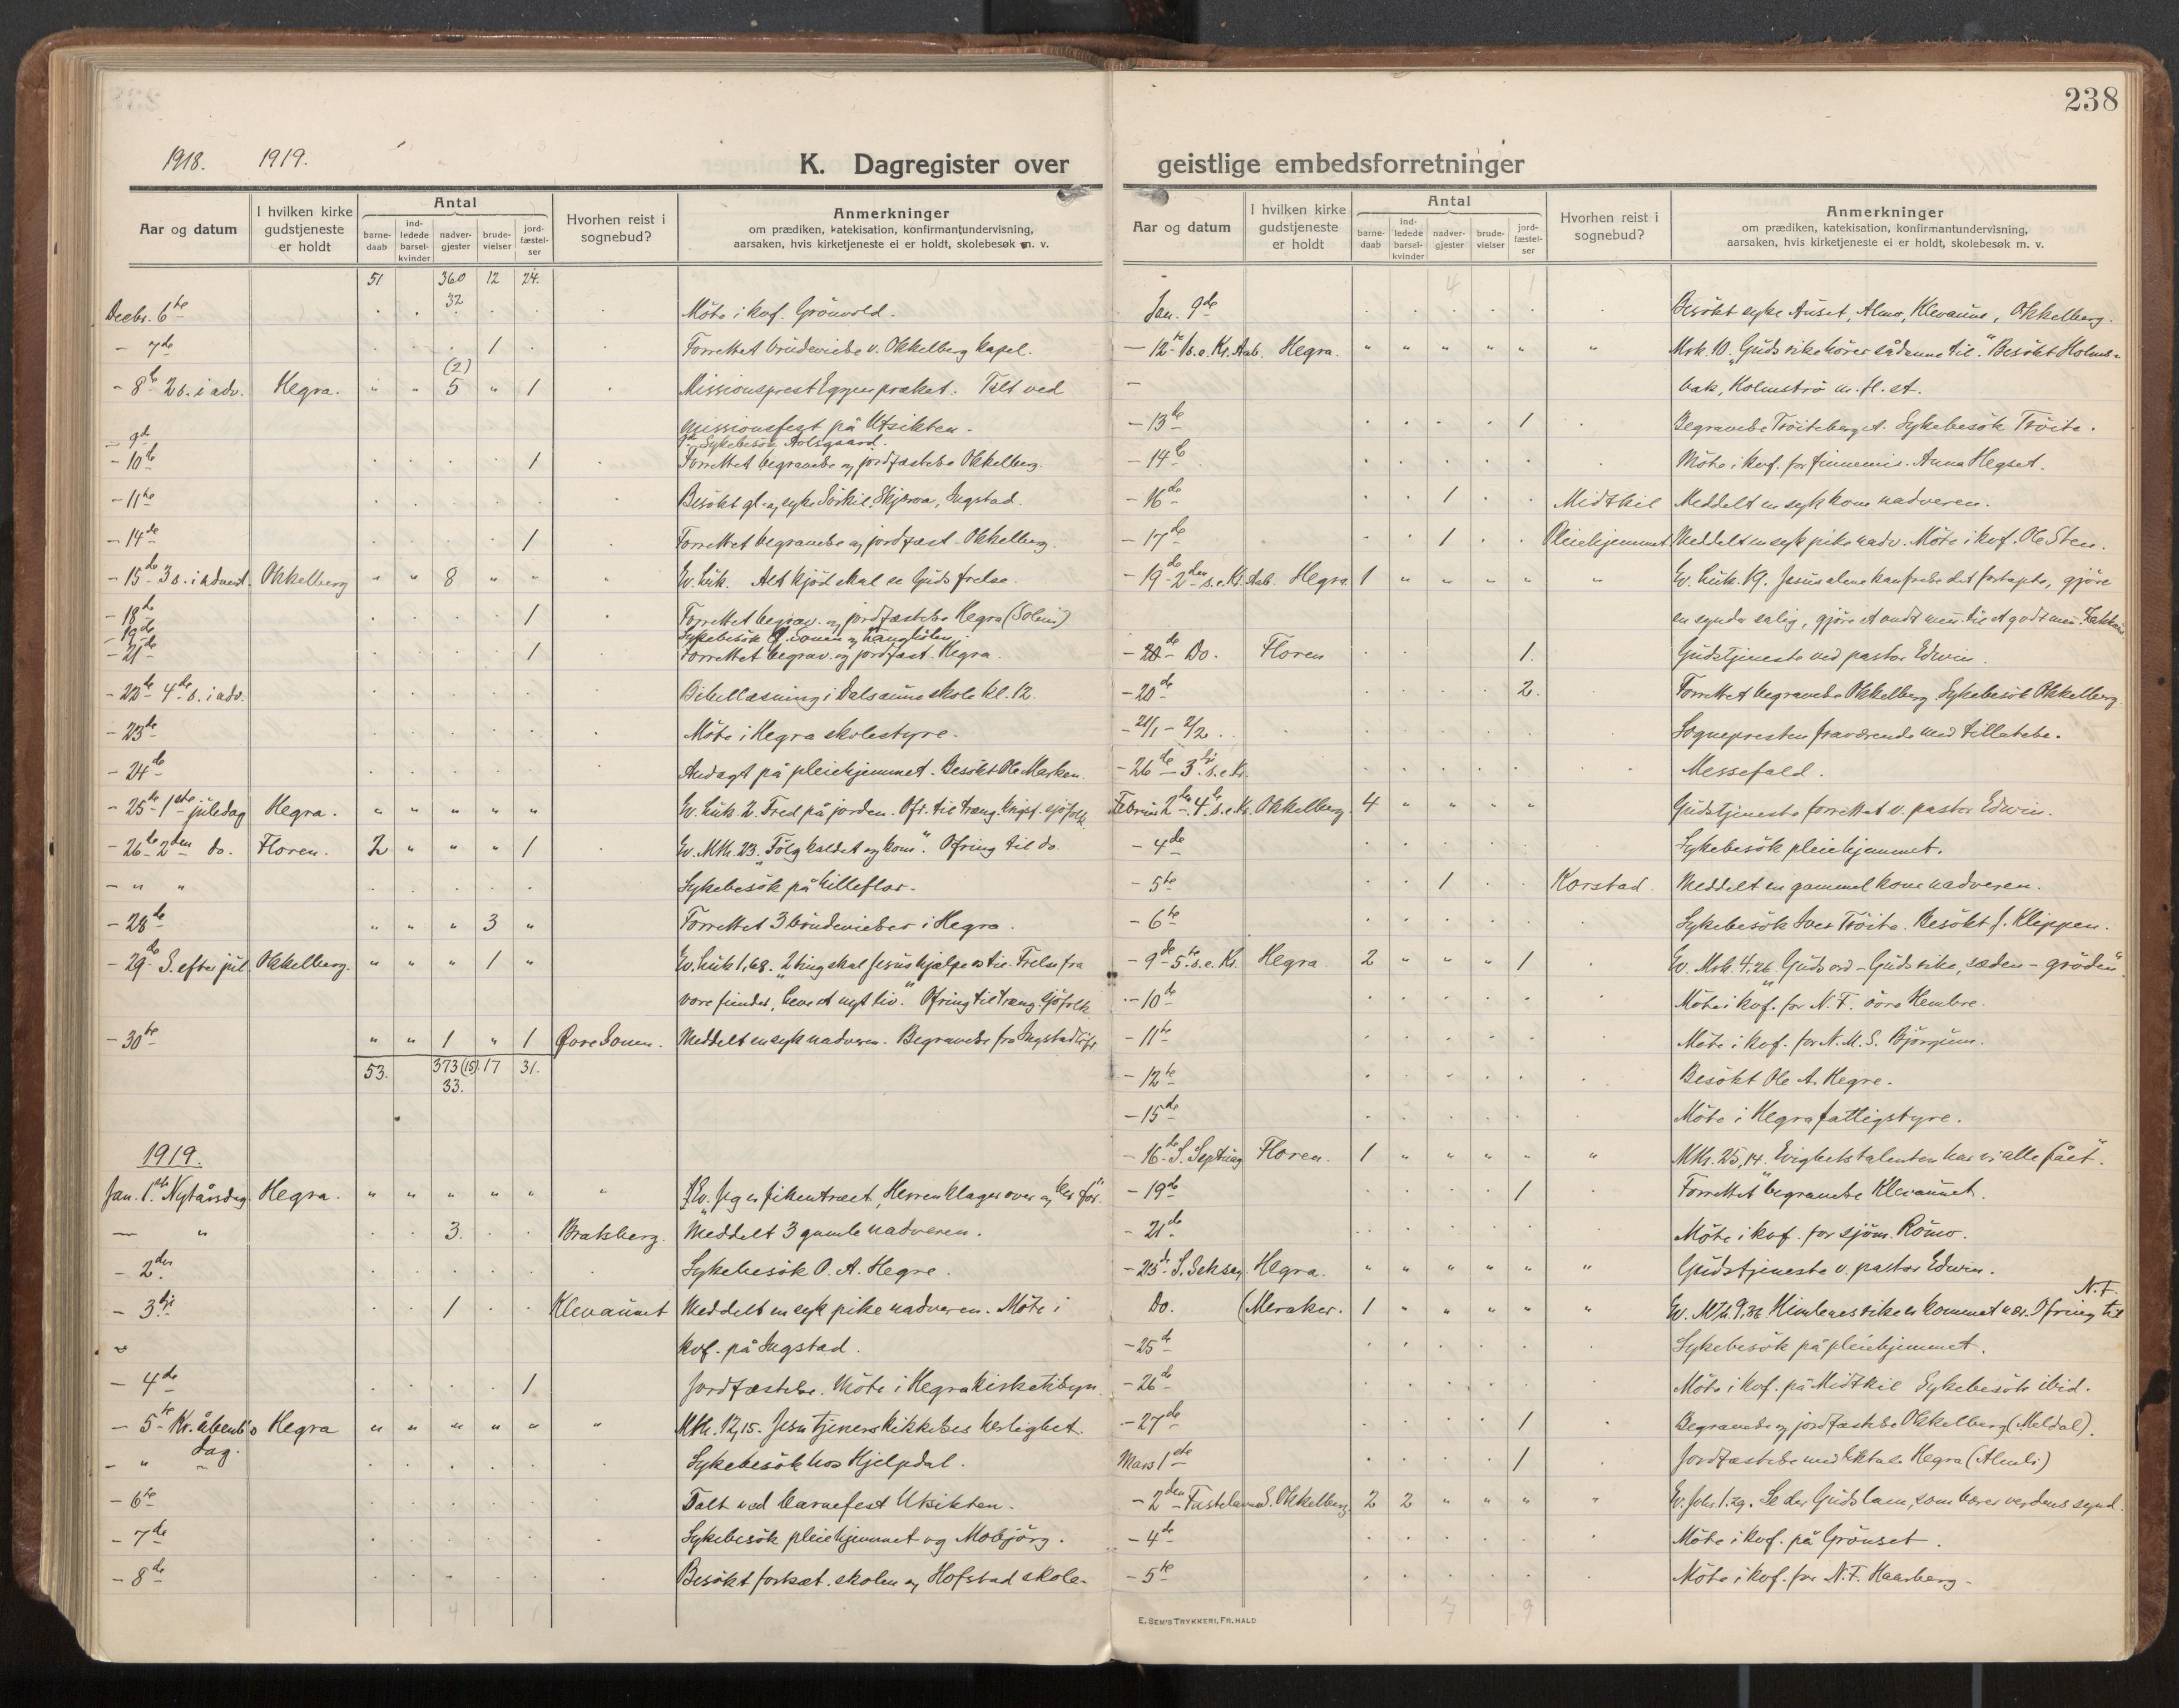 238
1918. 1919.
K. Dagregister over geistlige embedsforretninger
Aar og datum
I hvilken kirke gudstjeneste er holdt
Antal
barne-daab
ind-ledede barsel-kvinder
nadver-gjester
brude-vielser
jord-fæstel-ser
Hvorhen reist i sognebud?
Anmerkninger
om prædiken, katekisation, konfirmantundervisning,
aarsaken, hvis kirketjeneste ei er holdt, skolebesøk m. v.
51 360 12 24.
32
Decbr. 6te Möte i kvf. Grönvold.
- 7de 1 Forrettet brudevielse v. Okkelberg kapel.
(2)
- 8de 2 s. i adv. Hegra. " " 5 " 1 Missionsprest Eggen præket. Talt ved
missionsfest på Utsikten.
- 9de Sykebesök Aolsgaard.
- 10de 1 Forrettet begravelse og jordfæstelse Okkelberg.
- 11te Besökt gl. og syke Sörkil, Skjerva, Ingstad.
- 14de 1 Forrettet begravelse og jordfæst. Okkelberg.
- 15de 3 s. i advent. Okkelberg " " 8 " " " Ev. Luk. Alt kjöd skal se Guds frelse.
- 18de 1 Forrettet begrav. og jordfæstelse Hegra (Solem)
- 19de Sykebesök Ö. Sonen og
- 21de 1 Forrettet begrav. og jordfæst. Hegra.
- 22de 4de s. i adv. Bibellæsning i Dalsaune skole kl. 12.
- 23de Möte i Hegra skolestyre.
- 24de Andagt på pleiehjemmet. Besökt Ole Marken.
- 25de 1ste juledag Hegra. " " " " " Ev. Luk. 2. Fred på jorden. Ofr. til træng. krigsf. sjöfolk.
- 26de 2den do. Floren. 2 " " " 1 Ev. Mth. 23. "Fölg kaldet og kom". Ofring til do.
- " " Sykebesök på Lilleflor.
- 28de " " " 3 " Forrettet 3 brudevielser i Hegra.
- 29de S. efter jul. Okkelberg. " " " 1 " Ev. Luk 1,68. "2 ting skal Jesus hjælpe os til: Frelse fra
vore fiender, leve et nyt liv." Ofring til træng. sjöfolk.
- 30te " " 1 " 1 Övre Sonen. Meddelt en syk nadveren. Begravelse fra Ingstad
53. 373 (15) 17 31.
33.
1919.
Jan. 1ste Nytårsdag. Hegra. " " " " " " Ev. "Jeg er fikentræet, Herren klager over og ber for."
— " 3. Bratsberg. Meddelt 3 gamle nadveren.
- 2den Sykebesök O. A. Hegre.
- 3dje 1 Klevaunet Meddelt en syk pike nadveren. Möte i
kvf. på Ingstad.
- 4de 1 Jordfæstelse. Möte i Hegra kirketilsyn.
- 5te Kr. åbenb.s dag. Hegra " " " " " " Mth. 12,15. Jesu tjenerskikkelses herlighet.
- " Sykebesök hos Kjelpdal.
- 6te Talt ved barnefest Utsikten.
- 7de Sykebesök pleiehjemmet og Mobjörg.
- 8de Besökt fortsæt. skolen og Hofstad skole.
4 1
Aar og datum
I hvilken kirke gudstjeneste er holdt
Antal
barne-daab
ind-ledede barsel-kvinder
nadver-gjester
brude-vielser
jord-fæstel-ser
Hvorhen reist i sognebud?
Anmerkninger
om prædiken, katekisation, konfirmantundervisning,
aarsaken, hvis kirketjeneste ei er holdt, skolebesøk m. v.
4 1
Jan. 9de Besökt syke Auset, Almo, Klevaune, Okkelberg.
- 12te 1 s. e. Kr. Aab. Hegra. " " " " " " Mrk. 10. "Guds rike hører sådanne til." Besökt Holms-
bak, Holmströ m. fl. st.
- 13de 1 Begravelse Tröiteberget. Sykebesök Tröite.
- 14de Möte i kvf. for finnemis. Anna Hegset.
- 16de 1 Midtkil Meddelt en syk kone nadveren.
- 17de 1 Pleiehjemmet Meddelt en syk pike nadv. Möte i kvf. Ole Sten.
- 19de 2den s. e. Kr. Aab. Hegra. 1 " " " " " Ev. Luk. 19. Jesus alene kan frelse det fortapte, gjöre
en synder salig, gjöre et ondt men. til et godt men.
- 20de Do. Floren 1. Gudstjeneste ved pastor Edwin.
- 20de 2. Forrettet begravelse Okkelberg. Sykebesök Okkelberg
- 21/1 - 2/2. Sognepresten fraværende med tilladelse.
- 26de 3dje s. e. Kr. Messefald.
Februar 2den 4de s. e. Kr. Okkelberg. 4 " " " " Gudstjeneste forrettet v. pastor Edwin.
- 4de Sykebesök pleiehjemmet.
- 5te 1 Korstad. Meddelt en gammel kone nadveren.
- 6te Sykebesök Iver Tröite. Besökt J. Klippen.
- 9de 5te s. e. Kr. Hegra. 2 " " " 1 Ev. Mrk. 4,26. "Guds ord - Guds rike, sæden - gröden".
- 10de Möte i kvf. for N. F. övre Hembre.
- 11te Möte i kvf. for N. M. S. Björgum.
- 12te Besökt Ole A. Hegre.
- 15de Möte i Hegra fattigstyre.
- 16de S. Septuag. Floren. 1 " " " " " Mth. 25,14. "Evighetstalenten har vi alle fået".
- 19de 1 Forrettet begravelse Klevaunet.
- 21de Möte i kvf. for sjöm. Römo.
- 23de S. Seksag. Hegra. " " " " " " Gudstjeneste v. pastor Edwin.
N. F.
Do. (Meraker. 1 " " " " " Ev. Mth. 9,36. Himlenes rike er kommet nær. Ofring til
- 25de Sykebesök på pleiehjemmet.
- 26de Möte i kvf. på Midtkil Sykebesök ibid.
- 27de 1 Begravelse og jordfæstelse Okkelberg (Meldal).
Mars 1ste 1 Jordfæstelse med liktale Hegra (Almli)
- 2den Fastelavns S. Okkelberg. 2 2 " " " " Ev. Joh. 1.29. Se der Guds lam, som bærer verdens synd.
- 4de Möte i kvf. på Grönset.
- 5te Möte i kvf. for N. F. Haarberg.
7 9
E. SEM'S TRYKKERI, FR.HALD